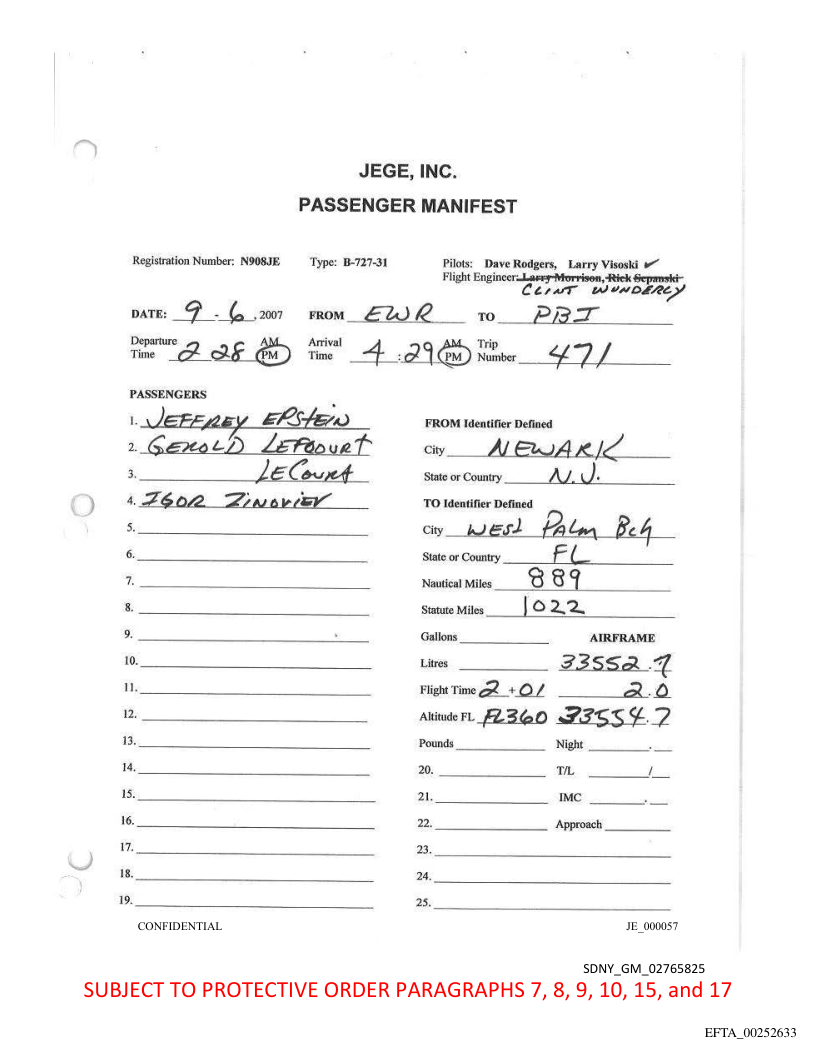 JEGE, INC.
PASSENGER MANIFEST
Registration Number: N908JE Type: B-727-31 Pilots: Dave Rodgers, Larry Visoski ✓
Flight Engineer: Larry Morrison, Rick Sepanski
CLINT WUNDERLY
DATE: 9 - 6, 2007 FROM EWR TO PBI
Departure Time 2 28 AM PM Arrival Time 4 : 29 AM PM Trip Number 471
PASSENGERS
1. JEFFREY EPSTEIN
2. GEROLD LEFCOURT
3. LECOURT
4. IGOR ZINOVIEV
5.
6.
7.
8.
9.
10.
11.
12.
13.
14.
15.
16.
17.
18.
19.
FROM Identifier Defined
City NEWARK
State or Country N.J.
TO Identifier Defined
City WEST PALM BCH
State or Country FL
Nautical Miles 889
Statute Miles 1022
Gallons AIRFRAME
Litres 33552.7
Flight Time 2 + 01 2.0
Altitude FL FL360 33554.7
Pounds Night .
20. T/L /
21. IMC .
22. Approach
23.
24.
25.
CONFIDENTIAL JE_000057
SDNY_GM_02765825
SUBJECT TO PROTECTIVE ORDER PARAGRAPHS 7, 8, 9, 10, 15, and 17
EFTA_00252633